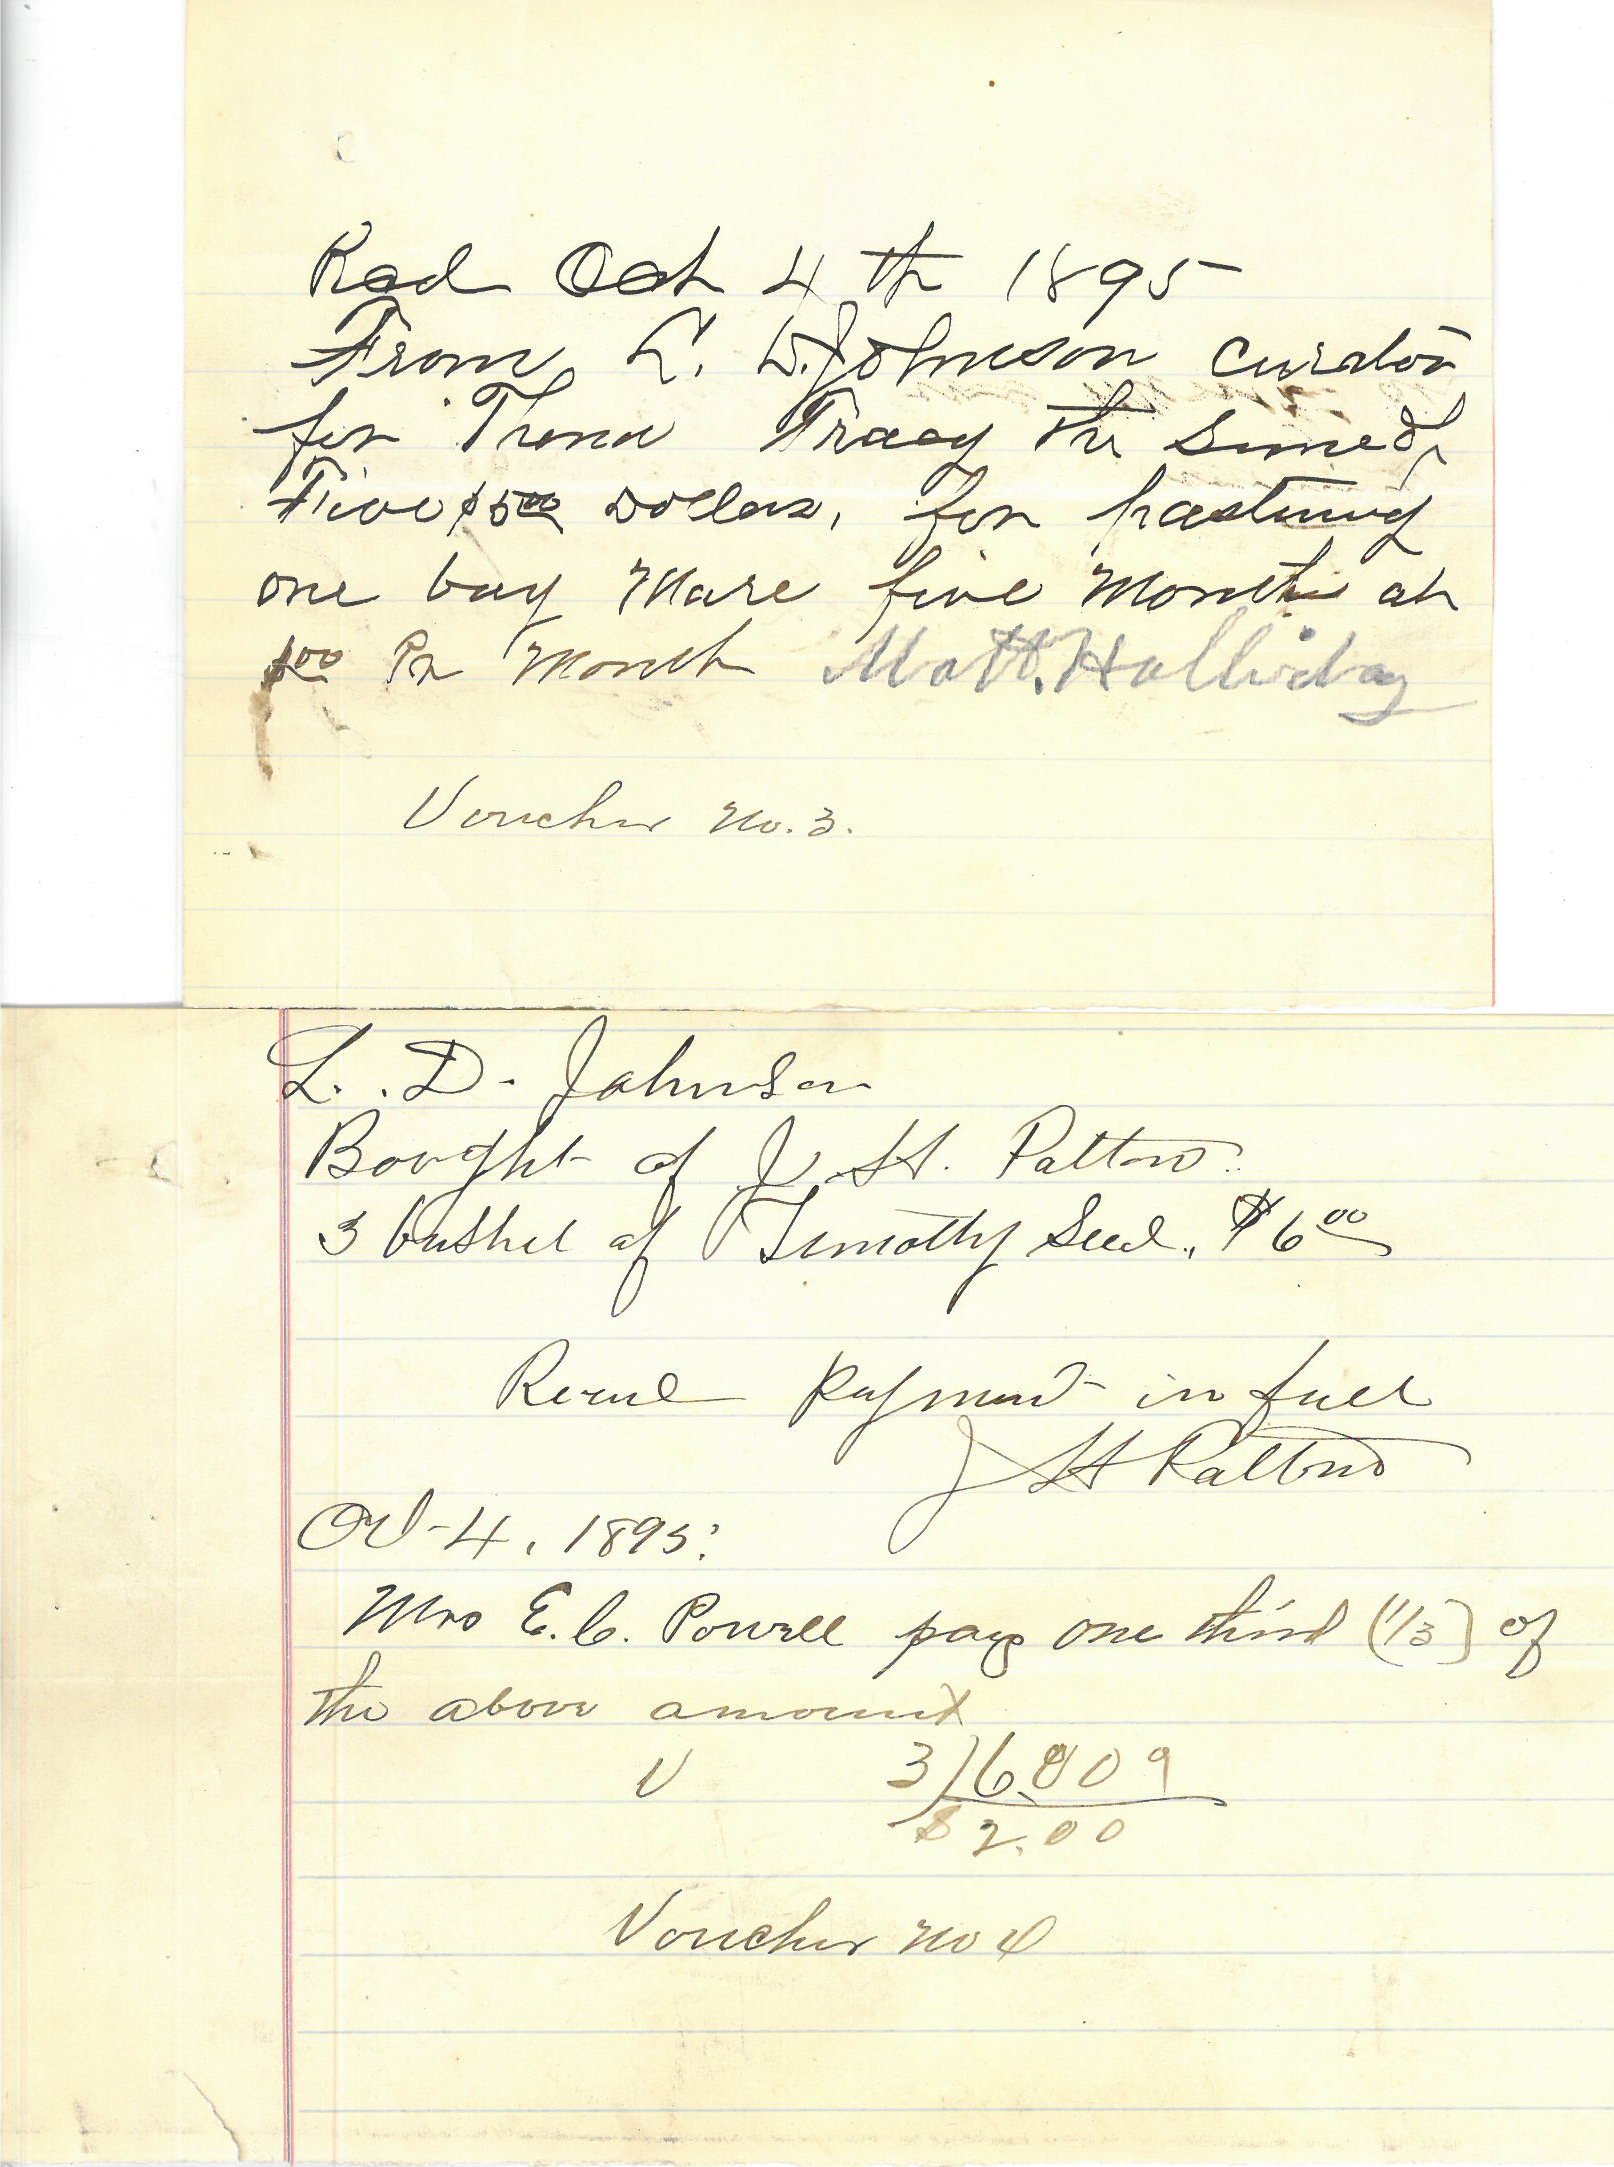 Recd Oct 4th 1895
From L. D. Johnson Curator
for Thona Tracy the sume of
Five $5.00 Dollars, for pasturing
one bay Mare five Months at
1.00 Pr Month Matt. Holliday
Voucher No. 3.
L. D. Johnson
Bought of J. H. Patton.
3 bushel of Timothy Seed. $6.00
Recved Payment in full
J H Patton
Oct-4, 1895.
Mrs E. C. Powell pays one third (1/3) of
the above amount
3)6.00
$2.00
Voucher No 4